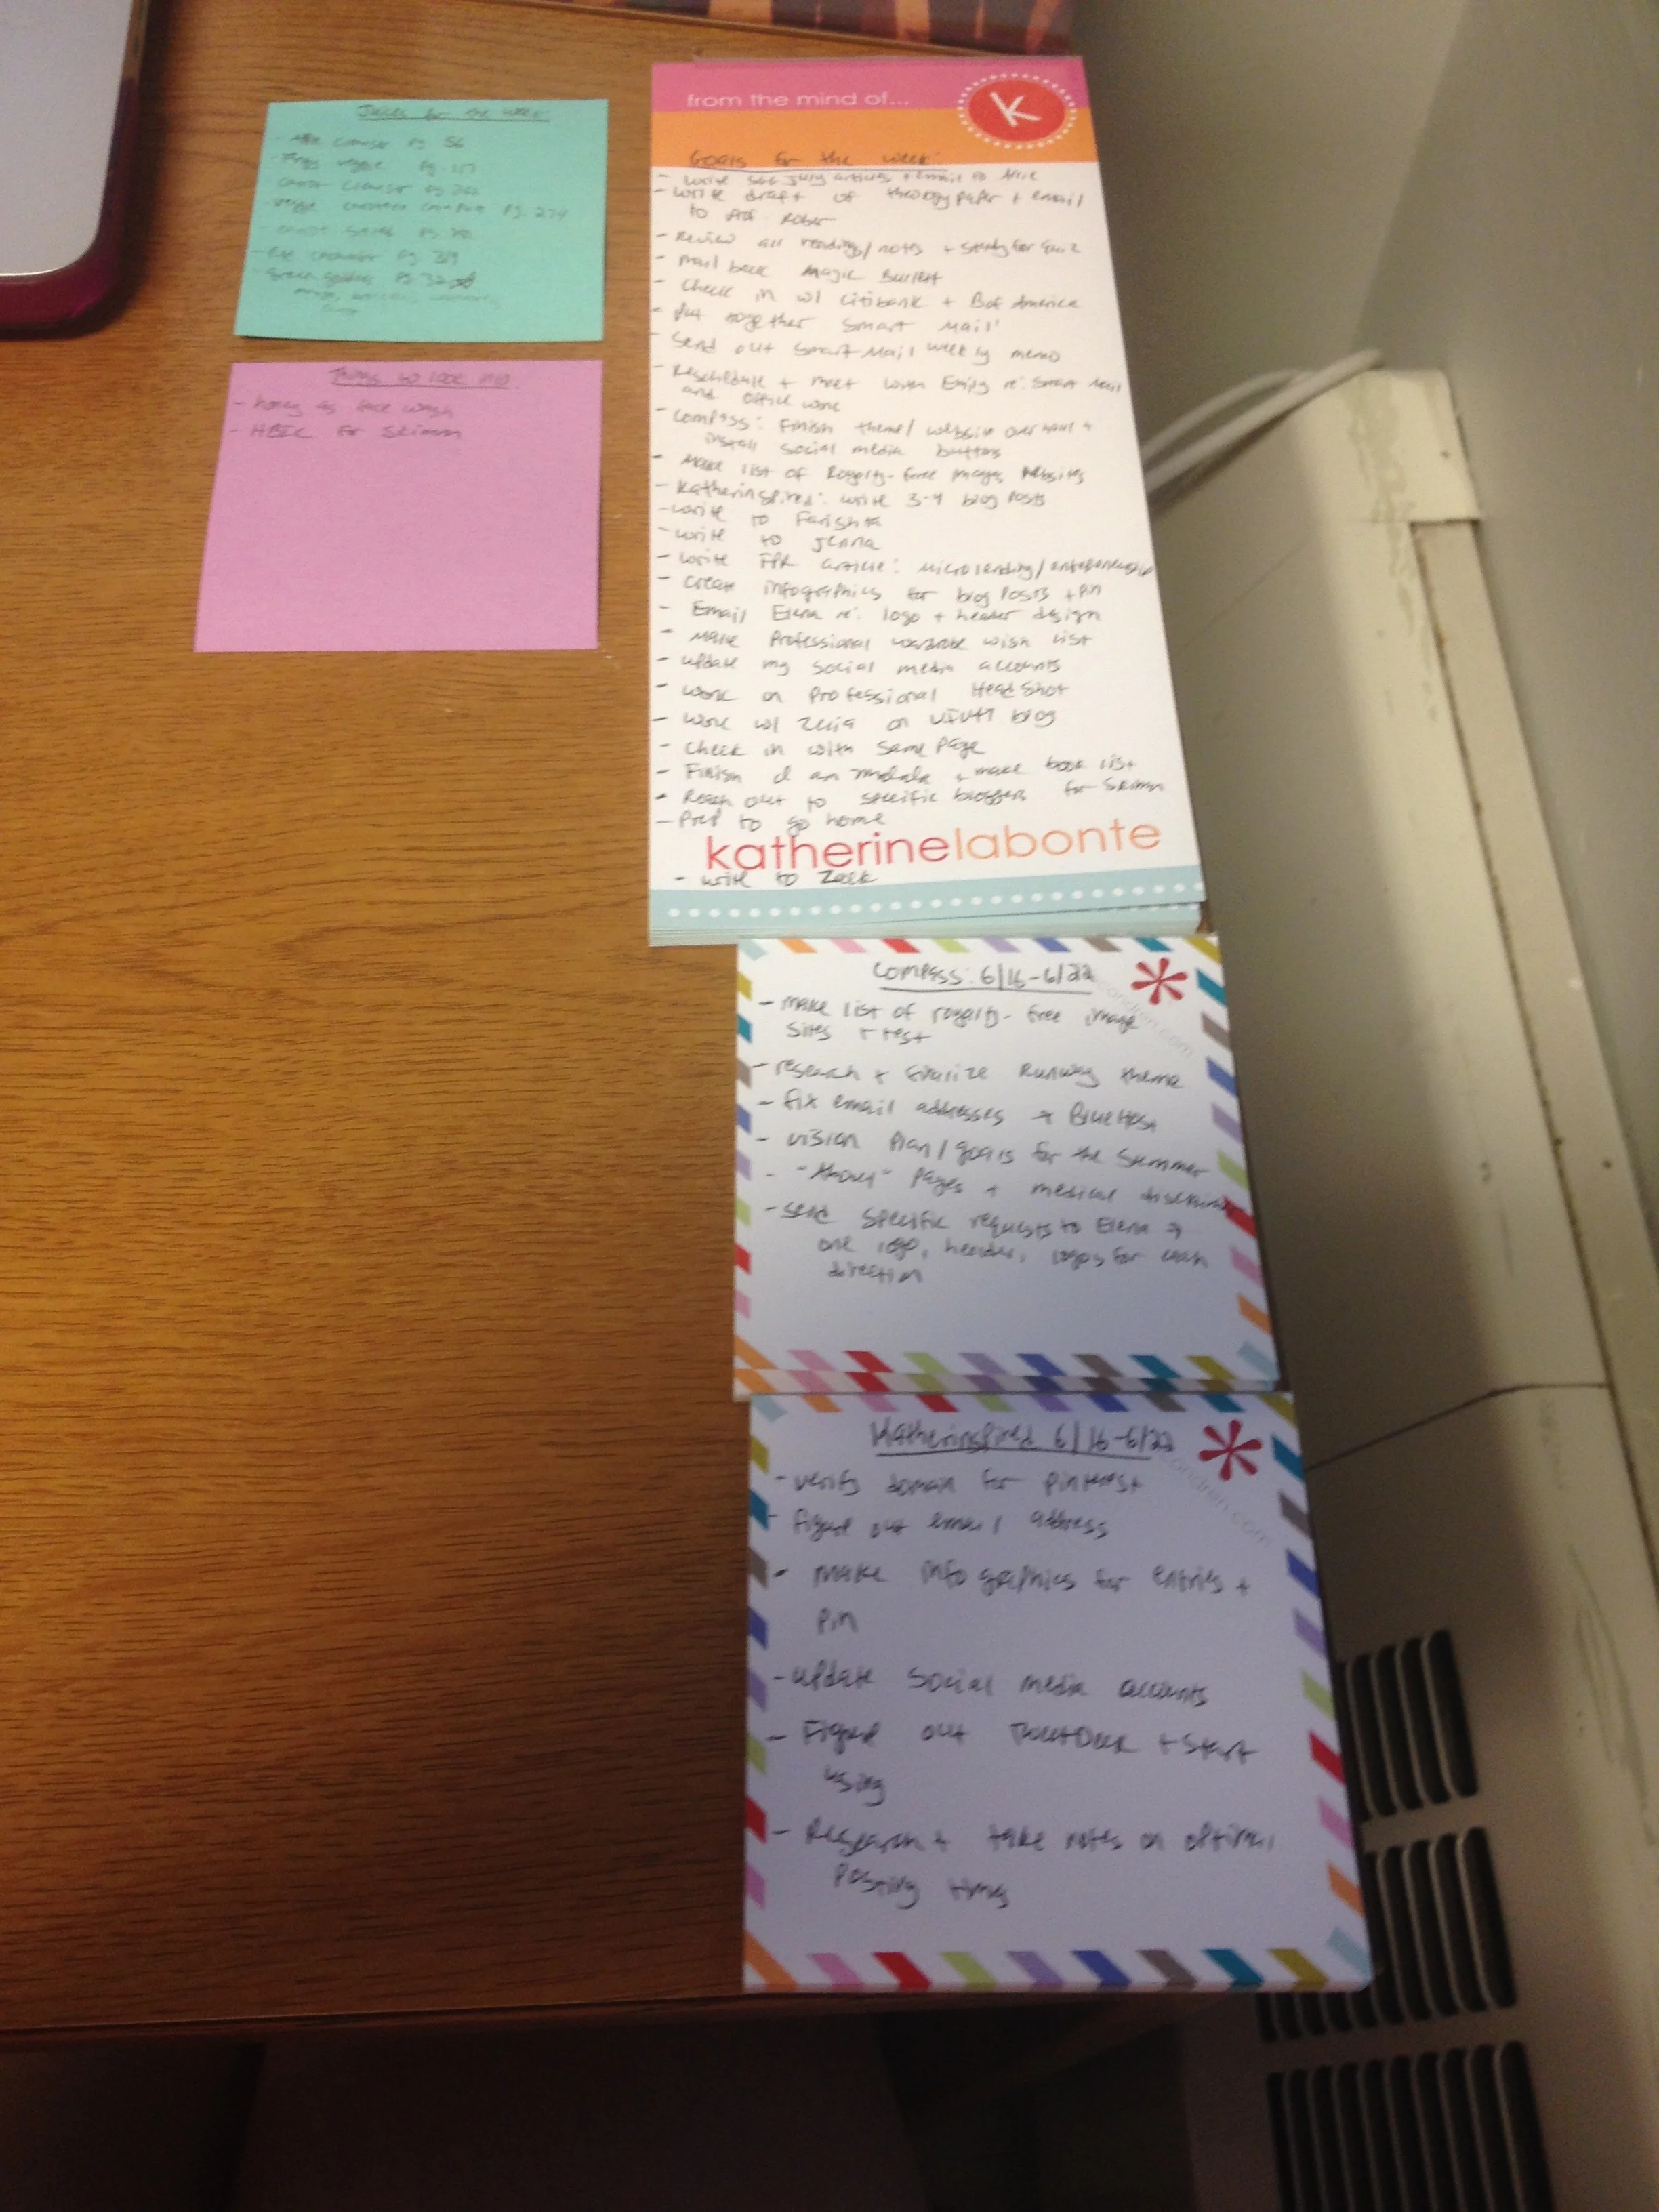 Juices for the week
Pg. 56
veggie Pg.
pg.
veggie Pg. 274
Pg.
Pg. 319
Green Pg. 32
Things to look into
- honey as face wash
- HBIC for Skimm
from the mind of...
K
Goals for the week:
- write articles + email to
- write draft of theology paper + email
to Prof.
- Review all readings/notes + study for quiz
- Mail back Magic Bullet
- Check in w/ Citibank + B of America
- Put together Smart Mail
- Send out Smart Mail weekly memo
- Reschedule + meet with Emily re: Smart Mail
and office work
- Compass: Finish theme/website overhaul +
install social media buttons
- Make list of Royalty-free images websites
- Katherinspired: write 3-4 blog posts
- write to Farishta
- write to Jenna
- write article: microlending/
- Create infographics for blog posts + pin
- Email Elena re: logo + header design
- Make Professional wardrobe wish list
- update my social media accounts
- work on Professional Headshot
- work w/ on blog
- Check in with Same Page
- Finish I am Malala + make book list
- Reach out to specific bloggers for Skimm
- Prep to go home
katherinelabonte
- write to Zack
Compass: 6/16-6/22
- make list of royalty-free image
sites + test
- research + finalize Runway theme
- fix email addresses → BlueHost
- vision plan/goals for the summer
- "About" pages + medical disclaimer
- send specific requests to Elena →
one logo, header, logos for each
direction
condren.com
Katherinspired 6/16-6/22
- verify domain for pinterest
- figure out email address
- make infographics for entries +
pin
- update social media accounts
- Figure out TweetDeck + start
using
- Research + take notes on optimal
posting times
condren.com